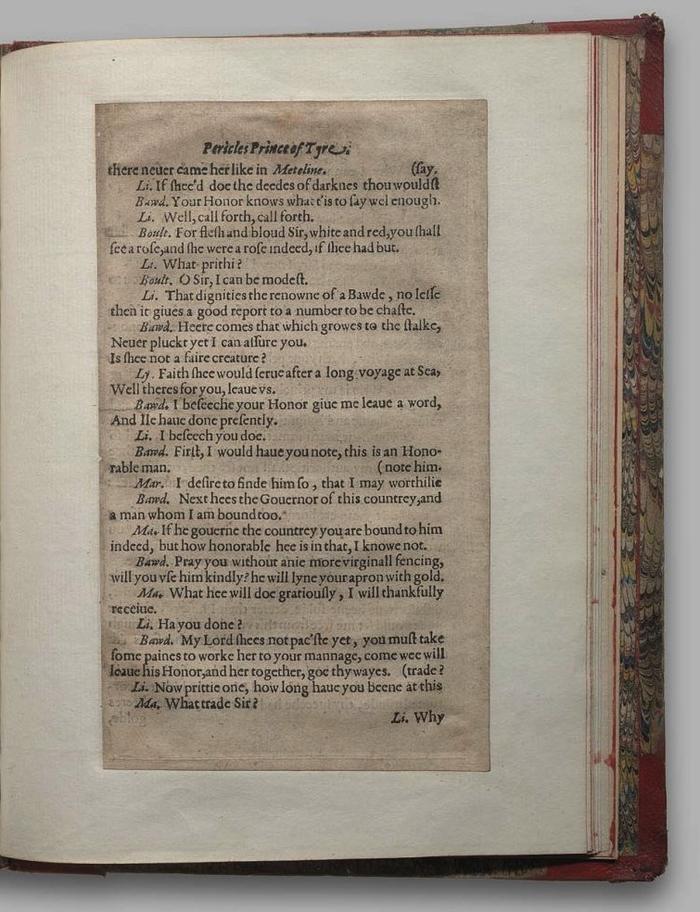 Pericles Prince of Tyre.
there neuer came her like in Meteline. (ſay.
Li. If ſhee'd doe the deedes of darknes thou wouldſt
Bawd. Your Honor knows what t'is to ſay wel enough.
Li. Well, call forth, call forth.
Boult. For fleſh and bloud Sir, white and red, you ſhall
ſee a roſe, and ſhe were a roſe indeed, if ſhee had but.
Li. What prithi?
Boult. O Sir, I can be modeſt.
Li. That dignities the renowne of a Bawde, no leſſe
then it giues a good report to a number to be chaſte.
Bawd. Heere comes that which growes to the ſtalke,
Neuer pluckt yet I can aſſure you.
Is ſhee not a faire creature?
Ly. Faith ſhee would ſerue after a long voyage at Sea,
Well theres for you, leaue vs.
Bawd. I beſeeche your Honor giue me leaue a word,
And Ile haue done preſently.
Li. I beſeech you doe.
Bawd. Firſt, I would haue you note, this is an Hono-
rable man. (note him.
Mar. I deſire to finde him ſo, that I may worthilie
Bawd. Next hees the Gouernor of this countrey, and
a man whom I am bound too.
Ma. If he gouerne the countrey you are bound to him
indeed, but how honorable hee is in that, I knowe not.
Bawd. Pray you without anie more virginall fencing,
will you vſe him kindly? he will lyne your apron with gold.
Ma. What hee will doe gratiouſly, I will thankfully
receiue.
Li. Ha you done?
Bawd. My Lord ſhees not pac'ſte yet, you muſt take
ſome paines to worke her to your mannage, come wee will
leaue his Honor, and her together, goe thy wayes. (trade?
Li. Now prittie one, how long haue you beene at this
Ma. What trade Sir?
Li. Why